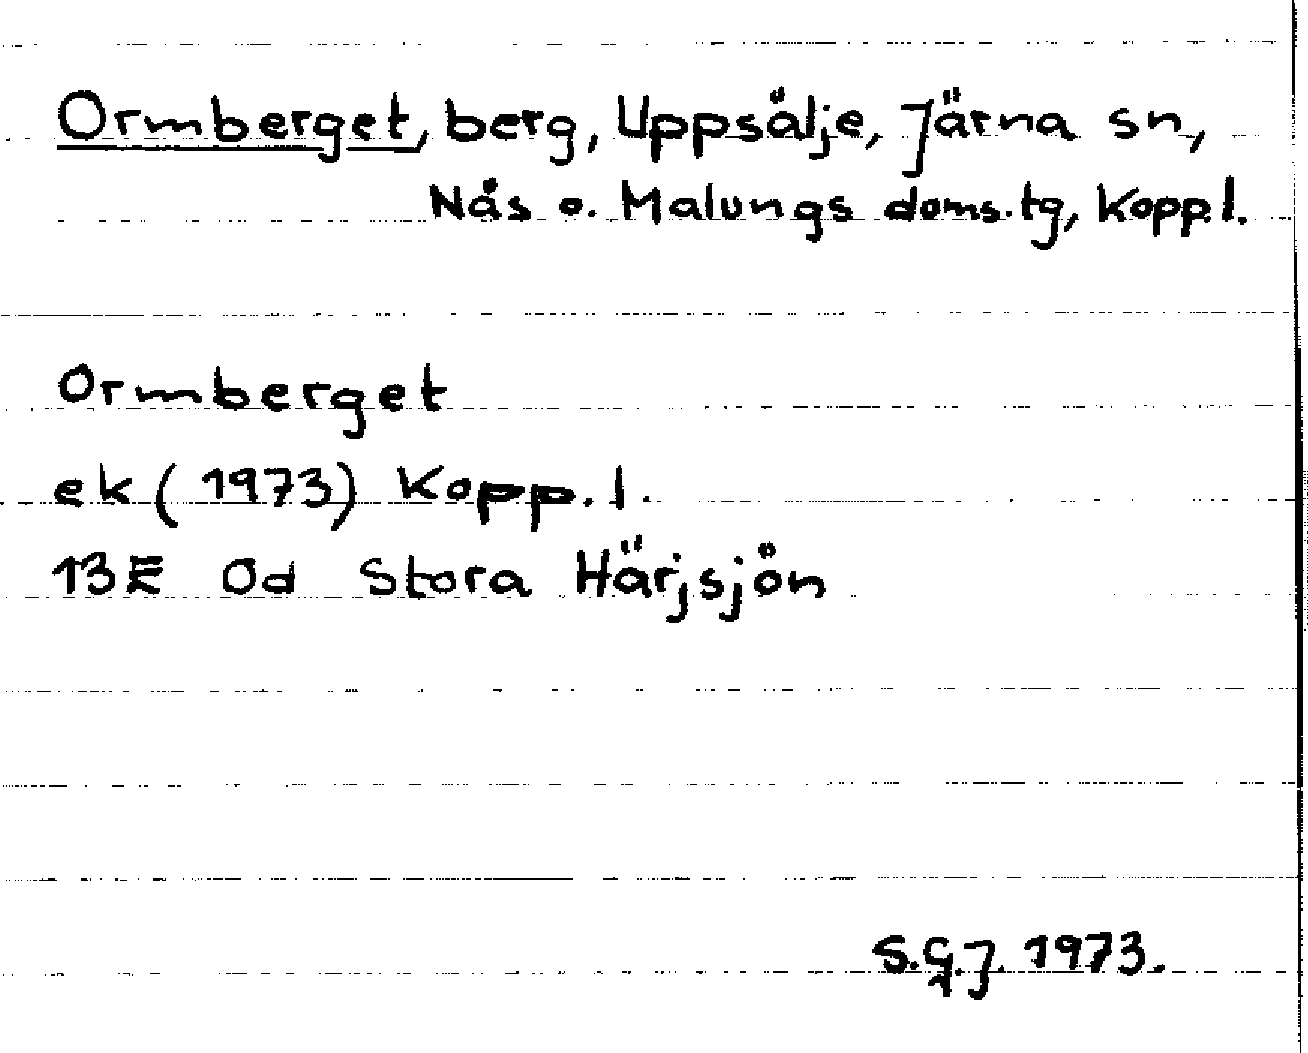 Ormberget, berg, Uppsälje, Järna sn,
Nås o. Malungs doms.tg, Kopp.l.
Ormberget
ek (1973) Kopp.l.
13E 0d Stora Härjsjön
S.G.J. 1973.